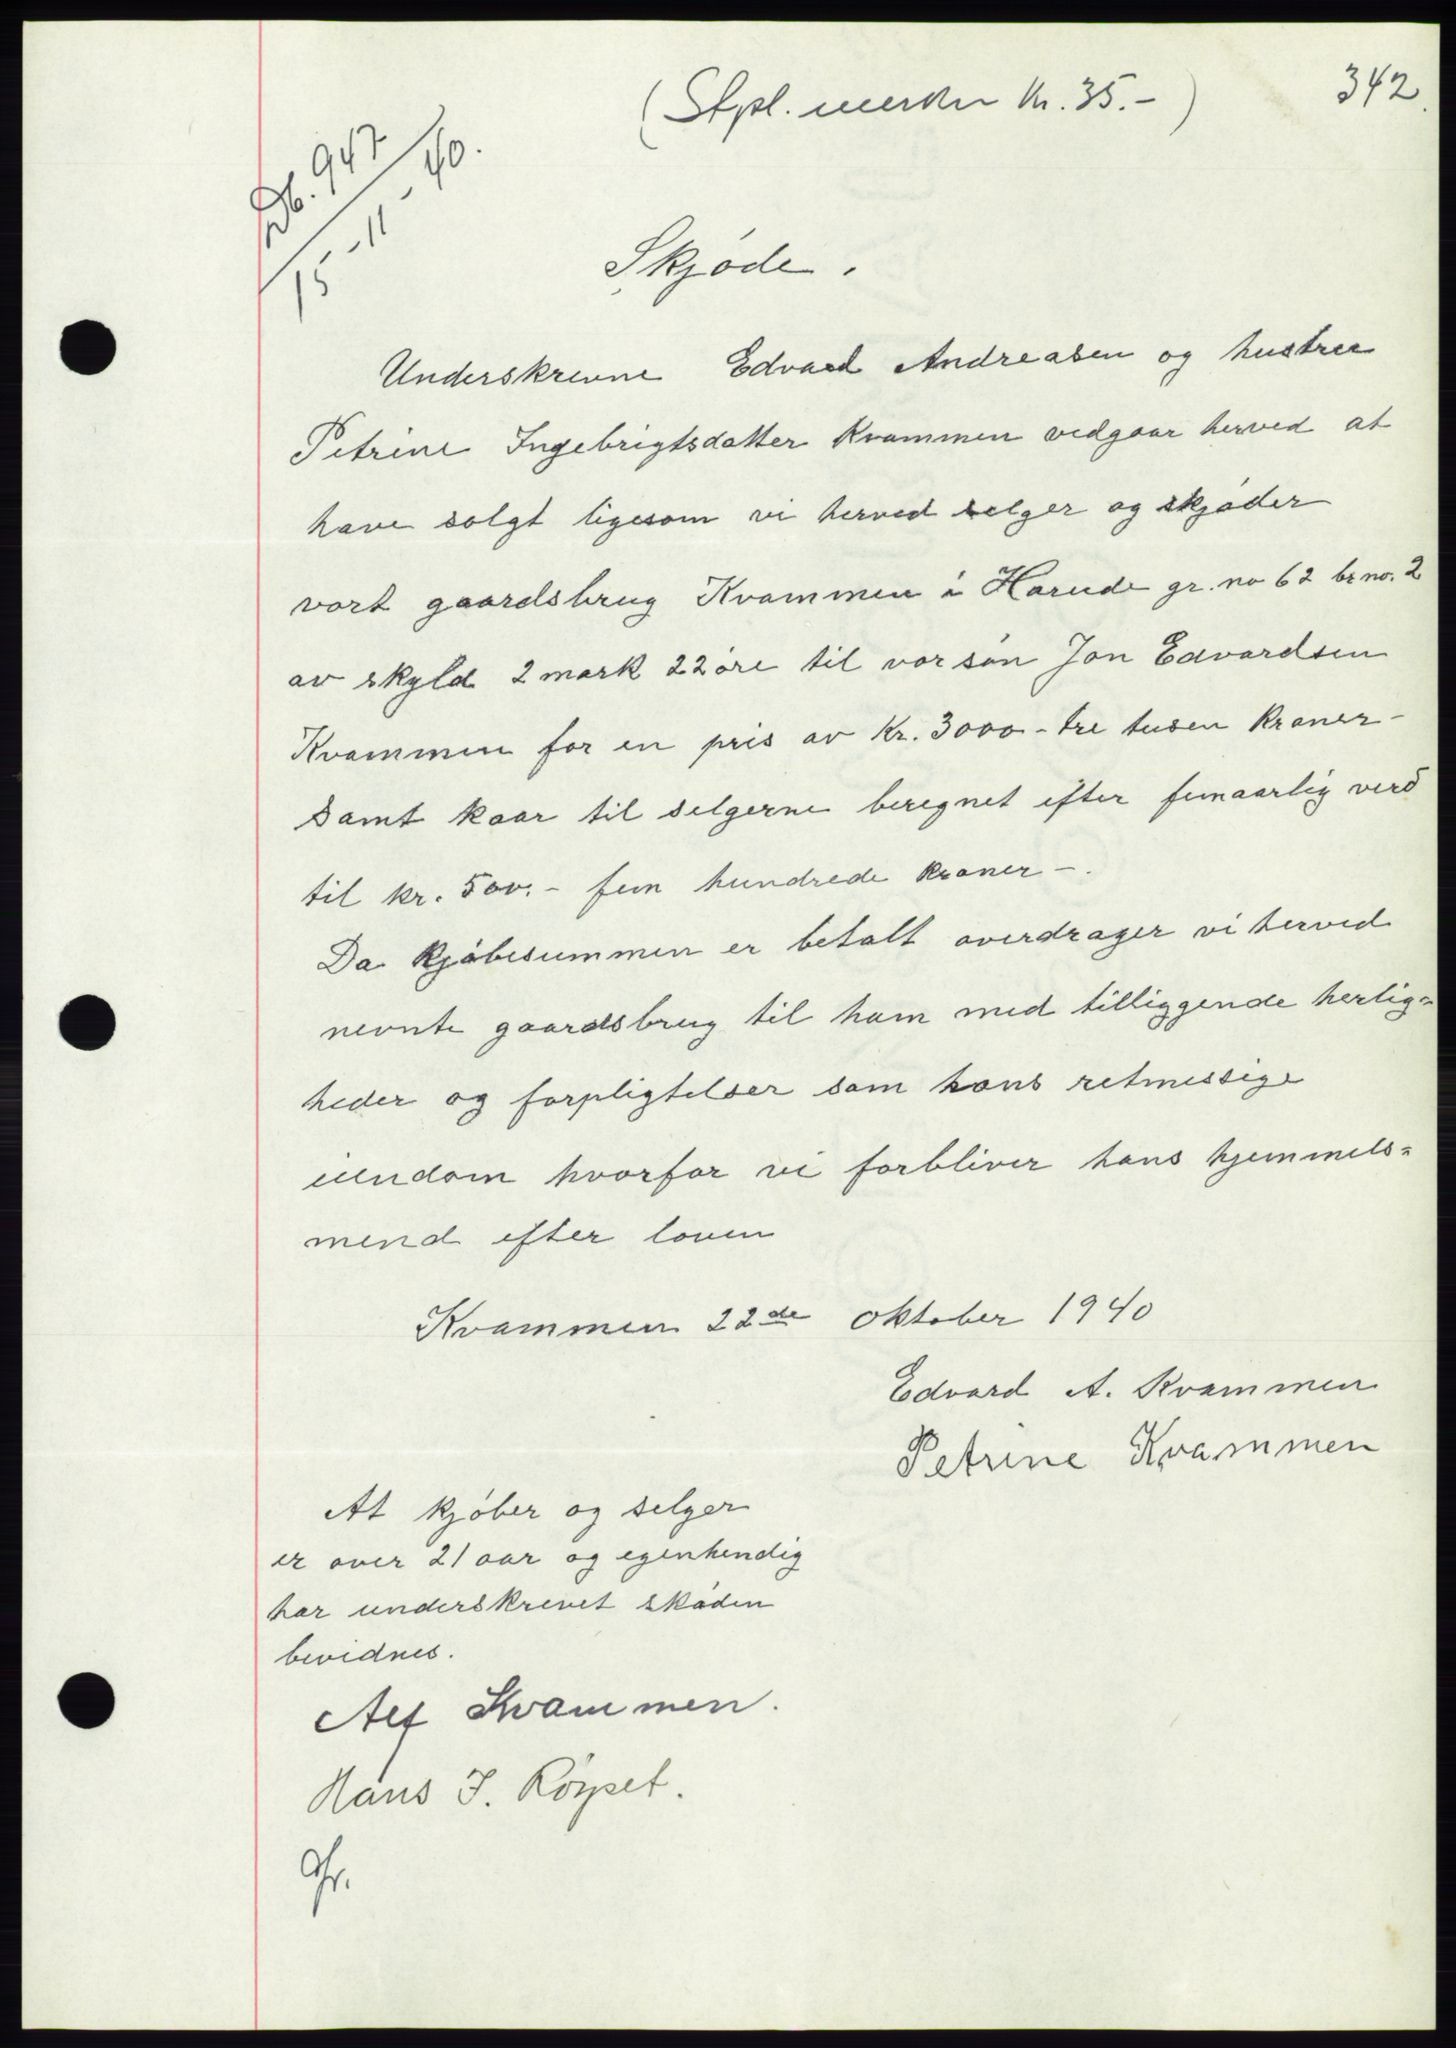 342.
(Stpl. merker kr. 35.-)
Db. 947
15-11-40.
Skjøde.
Underskrevne Edvard Andreasen og hustru
Petrine Ingebrigtsdatter Kvammen vedgaar herved at
have solgt ligesom vi herved selger og skjøder
vort gaardsbrug Kvammen i Hareide gr. no 62 br no. 2
av skyld 2 mark 22 øre til vor søn Jon Edvardsen
Kvammen for en pris av kr. 3000 - tre tusen kroner -
samt kaar til selgerne beregnet efter femaarlig verd
til kr. 500.- fem hundrede kroner -.
Da kjøbesummen er betalt overdrager vi herved
nevnte gaardsbrug til ham med tilliggende herlig=
heder og forpligtelser som hans retmessige
eiendom hvorfor vi forbliver hans hjemmels=
mend efter loven
Kvammen 22de oktober 1940
Edvard A. Kvammen
Petrine Kvammen
At kjøber og selger
er over 21 aar og egenhendig
har underskrevet skøden
bevidnes.
Alf Kvammen.
Hans J. Röyset.